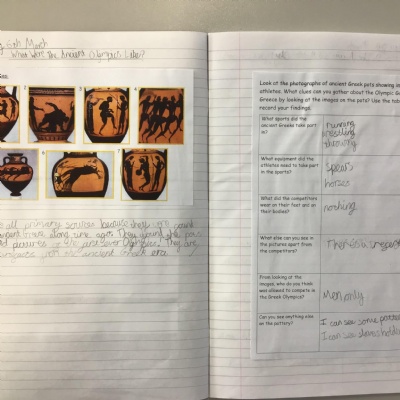 6th March
What Were the Ancient Olympics Like?
all primary sources because they were
from a long time ago. They found the
pictures of the Olympics. They are
the ancient Greek era.
Look at the photographs of ancient Greek pots showing
athletes. What clues can you gather about the Olympic
Greece by looking at the images on the pots? Use the
record your findings.
What sports did the
ancient Greeks take part
in?
running
wrestling
throwing
What equipment did the
athletes need to take part
in the sports?
spears
horses
What did the competitors
wear on their feet and on
their bodies?
nothing
What else can you see in
the pictures apart from
the competitors?
Ther is a
From looking at the
images, who do you think
was allowed to compete in
the Greek Olympics?
Men only
Can you see anything else
on the pottery?
I can see some
I can see